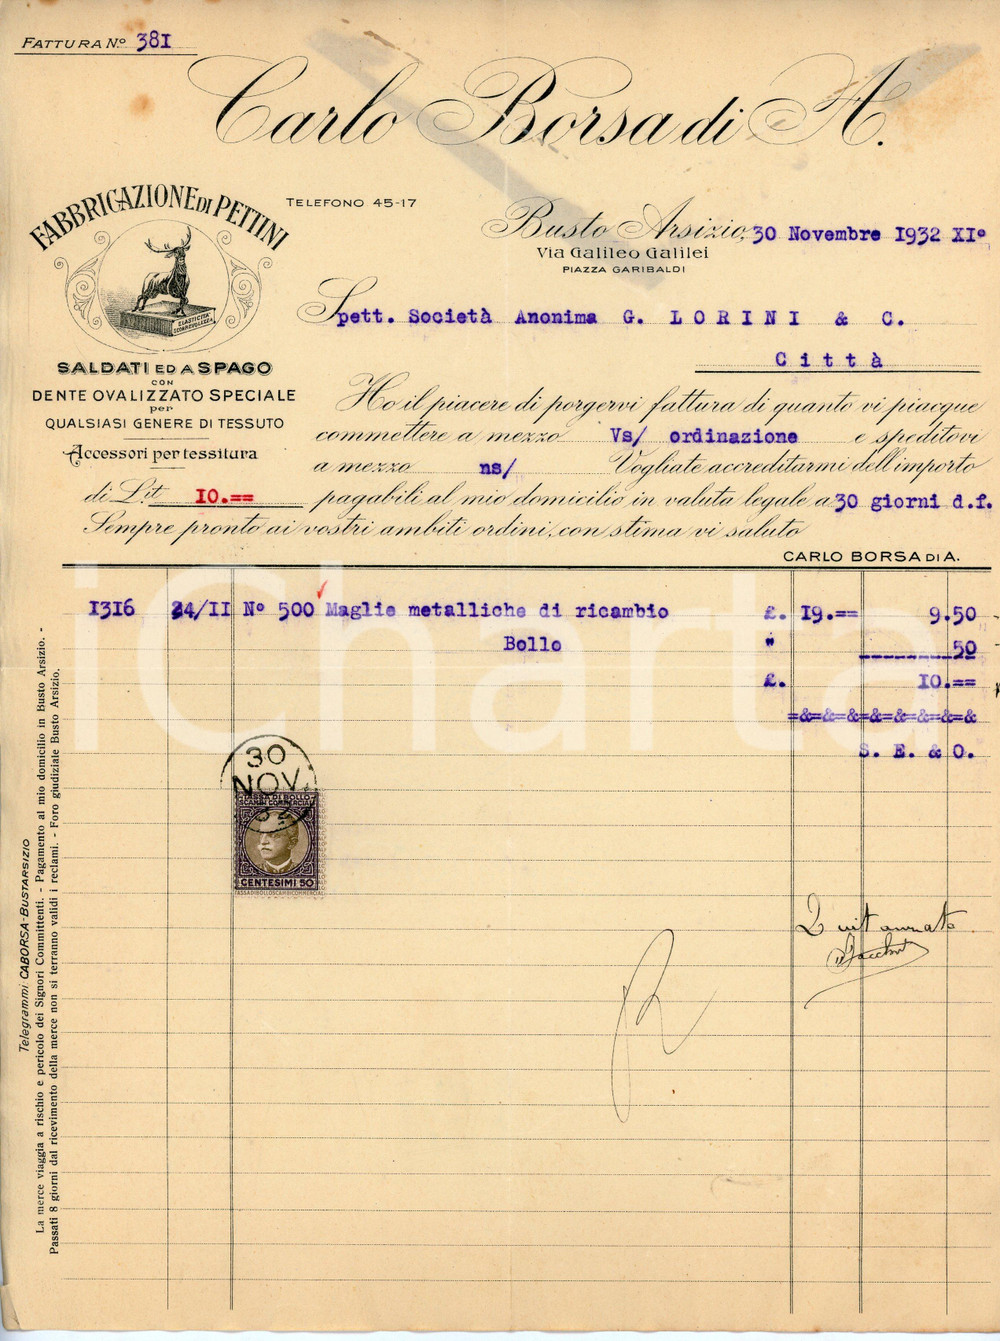 FATTURA N.º 381
Carlo Borsa di A.
FABBRICAZIONE DI PETTINI
ELASTICITÀ
SCORREVOLEZZA
SALDATI ED A SPAGO
CON
DENTE OVALIZZATO SPECIALE
per
QUALSIASI GENERE DI TESSUTO
Accessori per tessitura
TELEFONO 45-17
Busto Arsizio, 30 Novembre 1932 XIº
Via Galileo Galilei
PIAZZA GARIBALDI
Spett. Società Anonima G. LORINI & C.
Città
Ho il piacere di porgervi fattura di quanto vi piacque
commettere a mezzo Vs/ ordinazione e speditovi
a mezzo ns/ Vogliate accreditarmi dell'importo
di L.it 10.== pagabili al mio domicilio in valuta legale a 30 giorni d.f.
Sempre pronto ai vostri ambiti ordini, con stima vi saluto
CARLO BORSA DI A.
1316 24/11 Nº 500 Maglie metalliche di ricambio £. 19.== 9.50
Bollo " 50
£. 10.==
=&=&=&=&=&=&=&=&
S. E. & O.
iCharta
30
NOV.
32
TASSA DI BOLLO
SCAMBI COMMERCIALI
CENTESIMI 50
TASSA DI BOLLO SCAMBI COMMERCIALI
Quitanzato
Telegrammi CABORSA-BUSTARSIZIO
La merce viaggia a rischio e pericolo dei Signori Committenti. - Pagamento al mio domicilio in Busto Arsizio. -
Passati 8 giorni dal ricevimento della merce non si terranno validi i reclami. - Foro giudiziale Busto Arsizio.